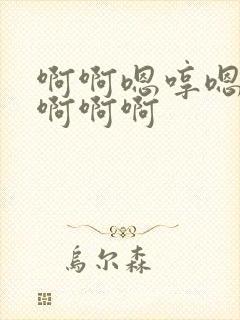 啊啊嗯哼嗯
啊啊啊
乌尔森